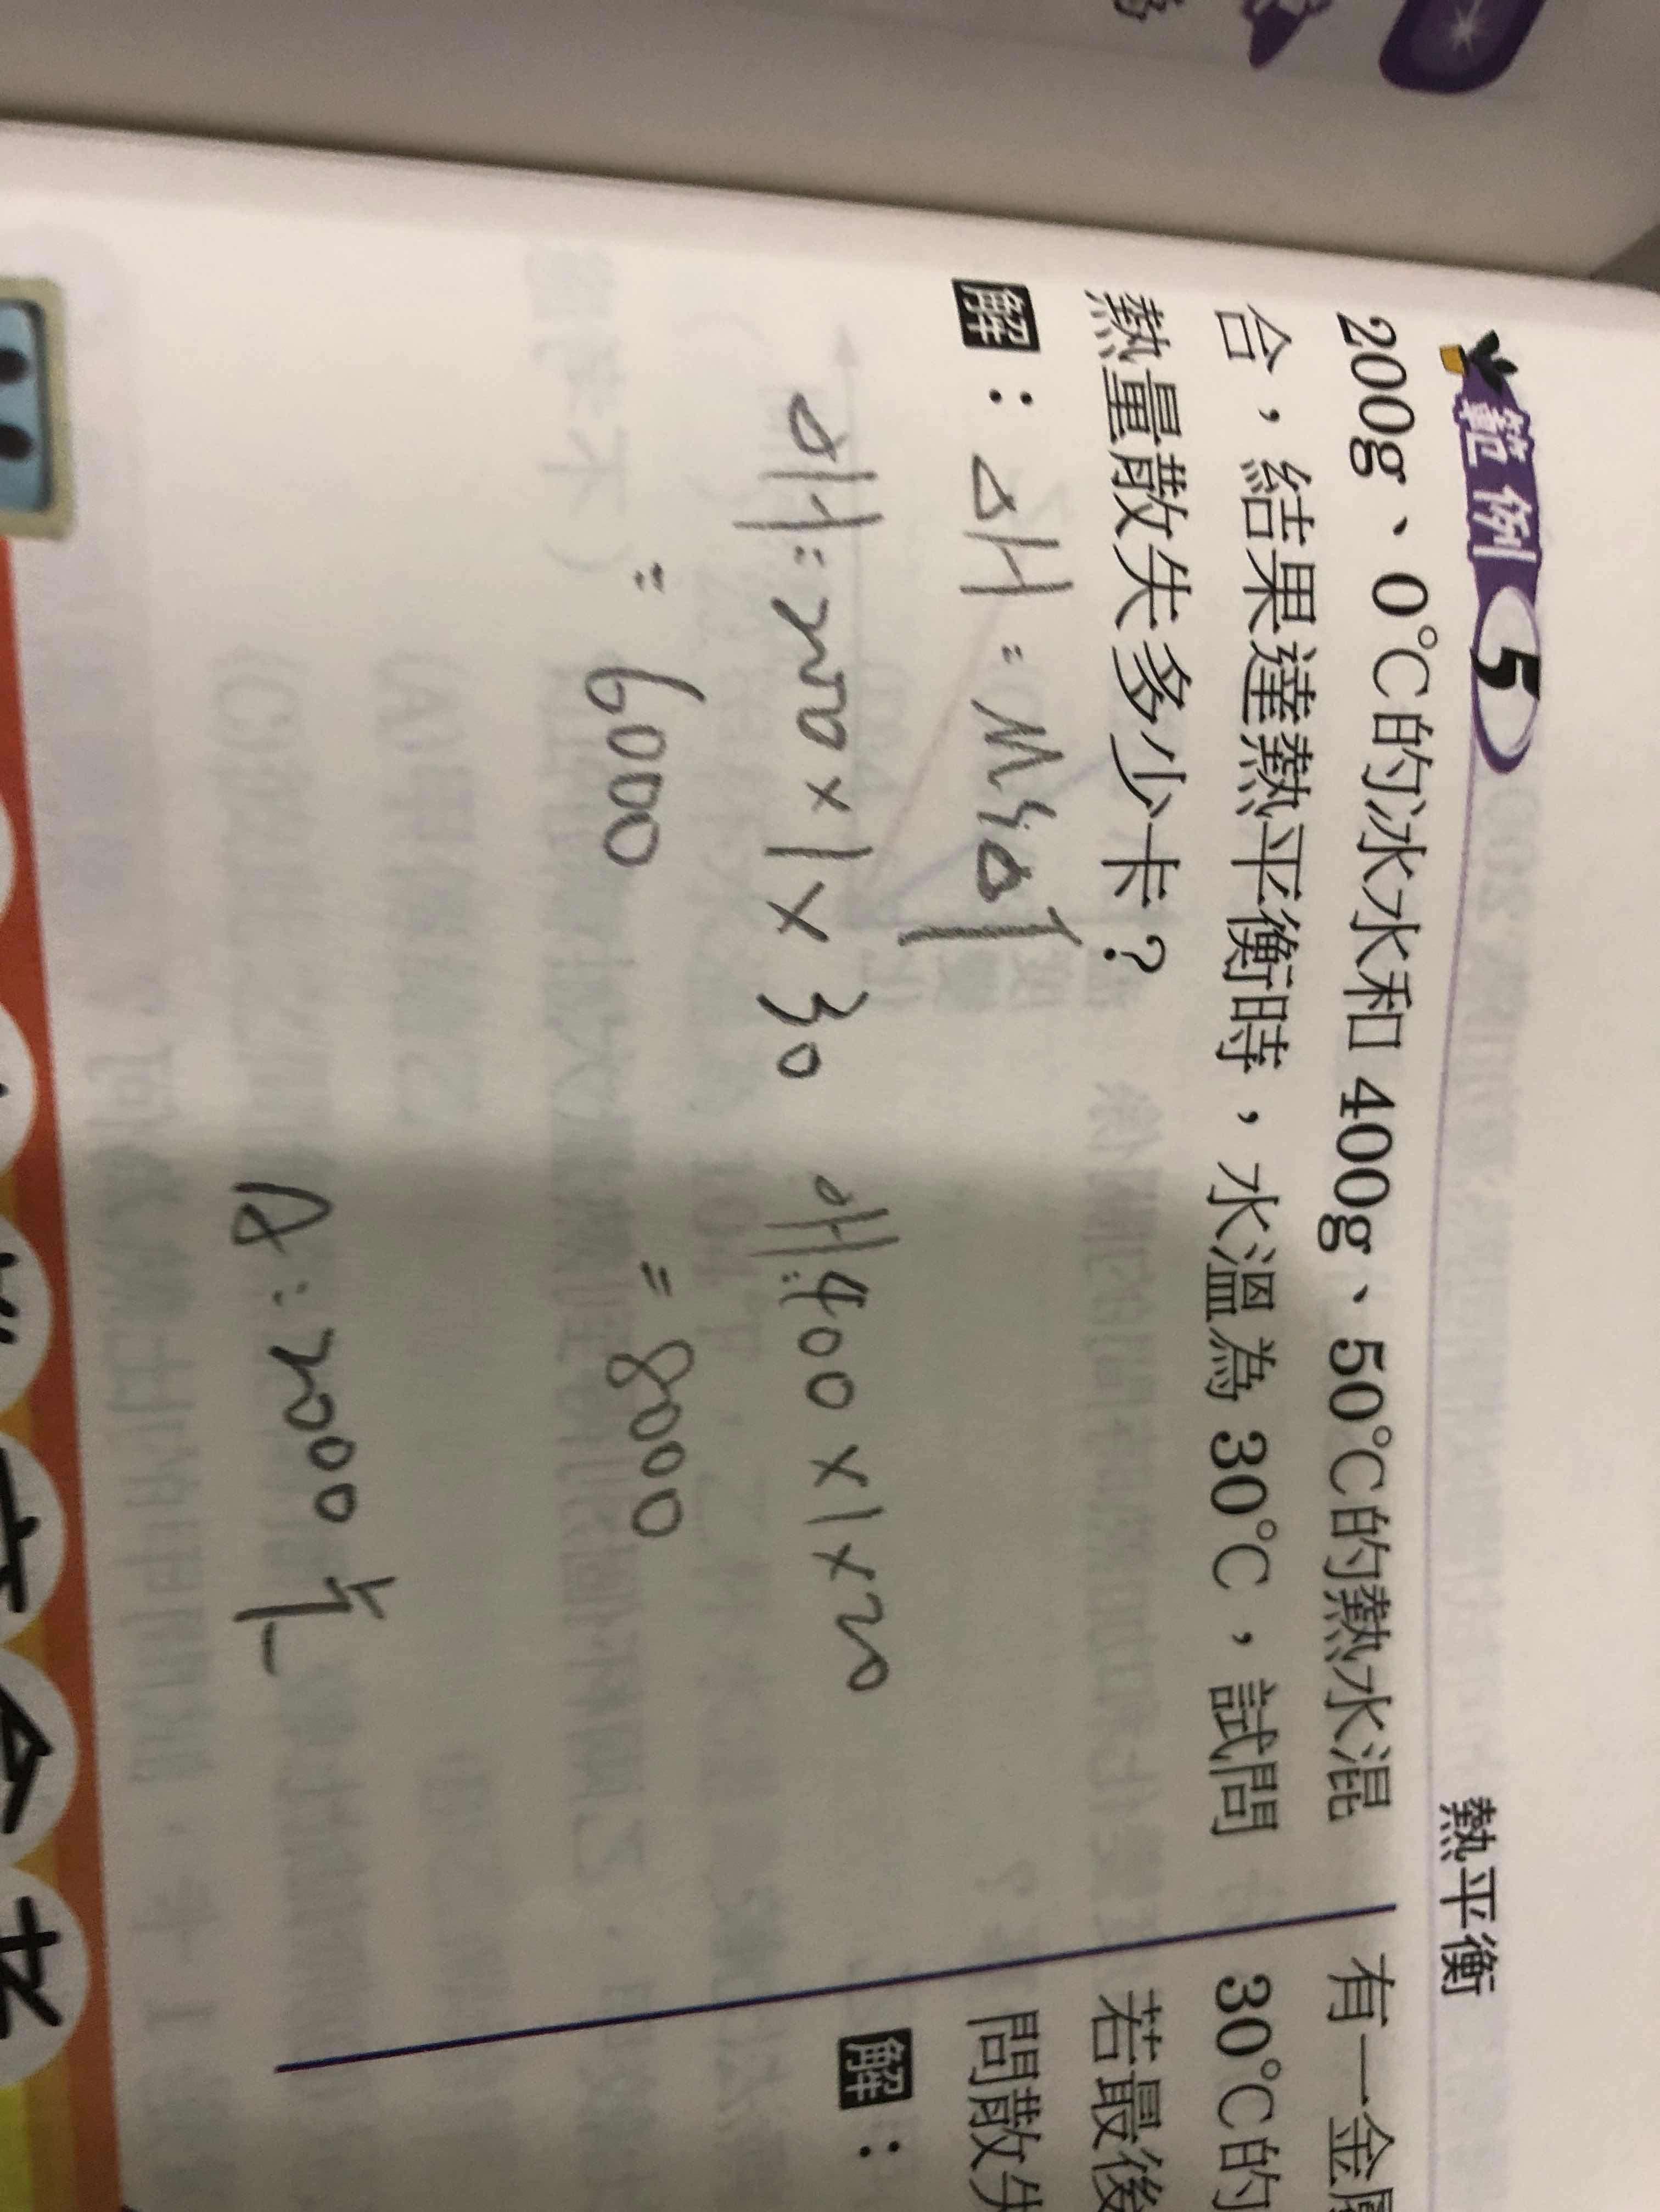 範例 5
熱平衡
200g、0℃的冰水和 400g、50℃的熱水混
合，結果達熱平衡時，水溫為 30℃，試問
熱量散失多少卡？
解：ΔH = MSΔT
ΔH = 200 × 1 × 30
= 6000
ΔH = 400 × 1 × 20
= 8000
A：2000 卡
有一金屬
30℃的
若最後
問散失
解：